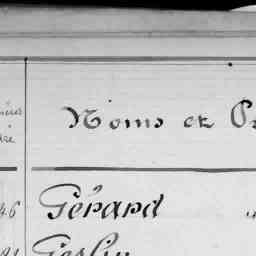 Noms et P
46 Gérard
Geslin